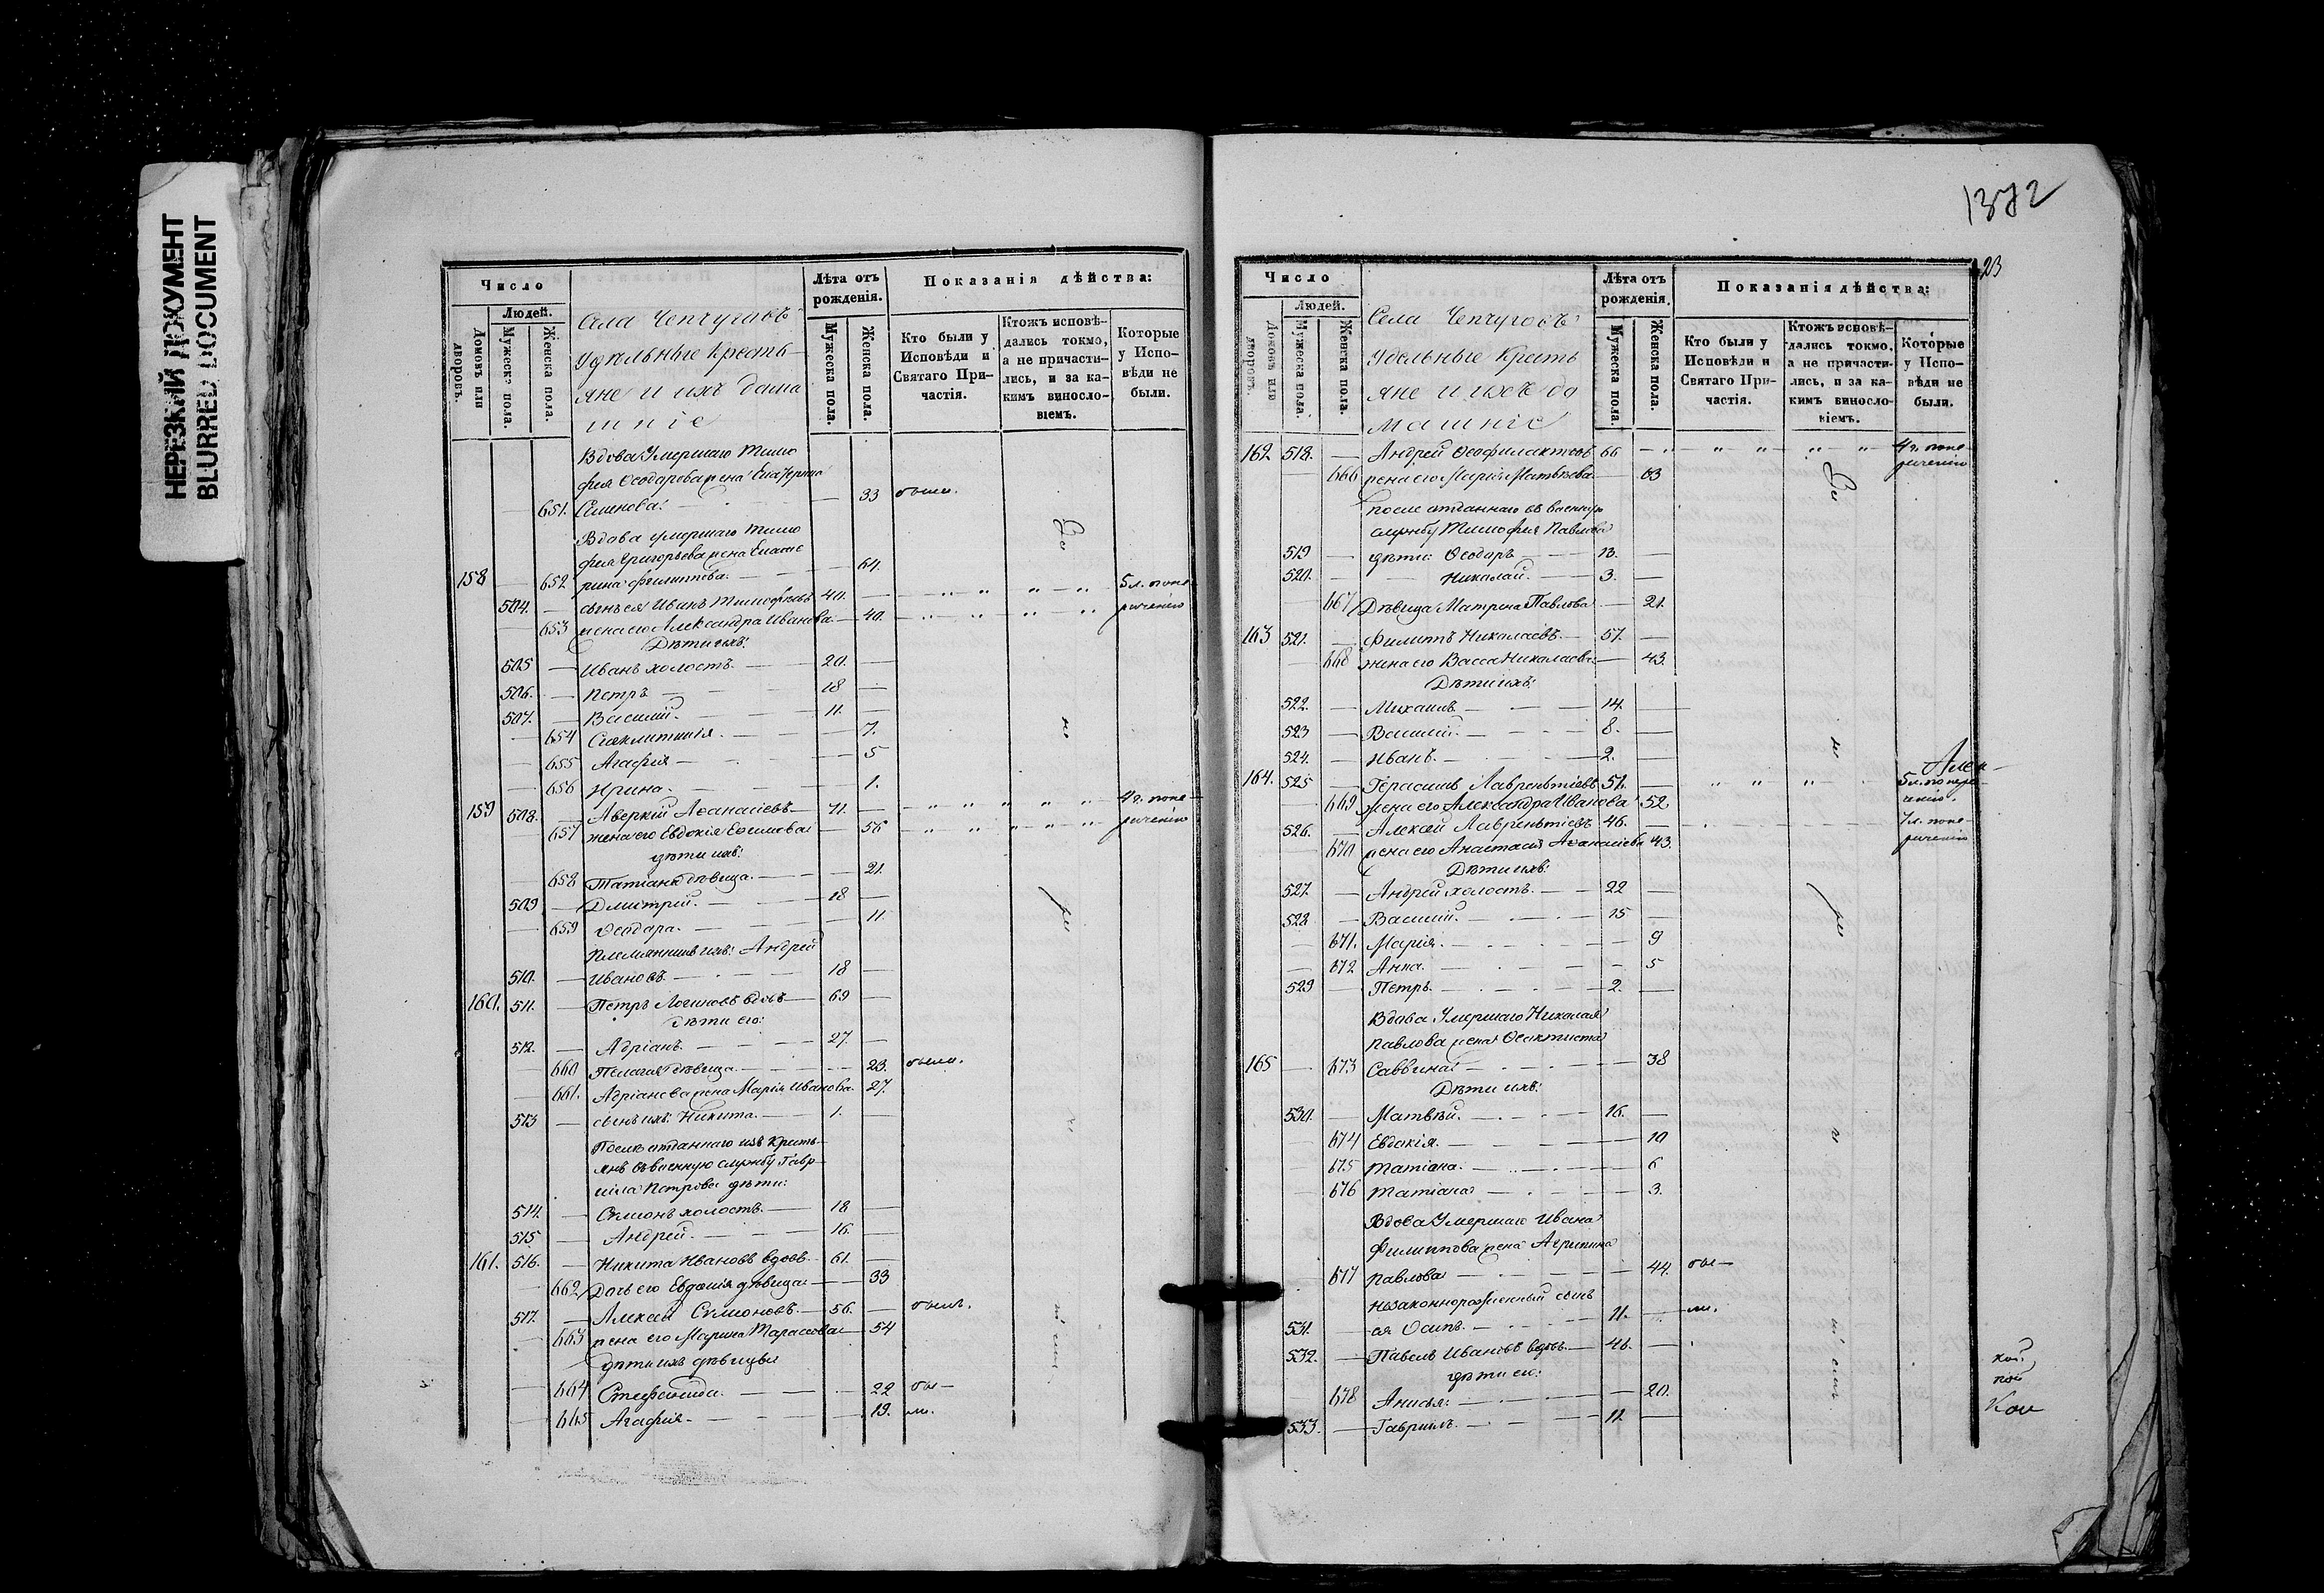 НЕРЕЗКИЙ ДОКУМЕНТ
BLURRED DOCUMENT
Число
Людей.
Домовъ или дворовъ.
Мужеска пола.
Женска пола.
Села Чепчуговъ
Удѣльные кресть-
яне и ихъ дома
шніе
Лѣта отъ рожденія.
Мужеска пола.
Женска пола.
Показанія дѣйства:
Кто были у Исповѣди и Святаго При-частія.
Ктожъ исповѣ-дались токмо, а не причасти-лись, и за ка-кимъ винosло-віемъ.
Которые у Испо-вѣди не были.
Вдова Умершаго Тимо
фея Ѳеодорова жена Екатерина
651. Семенова. — 33 были.
Вдова умершаго Тимо
фея Григорьева жена Екате
158 — 652 рина Филиппова. — 64.
504. — сынъ ея Иванъ Тимофѣевъ 40. — 5 л. попе
653 жена его Александра Иванова — 40. реченію
Дѣти ихъ:
505 — Иванъ холостъ. — 20. —
506. — Петръ — 18 —
507. — Василій. — 11. —
654 Синклитикія. — 7.
655 Агафія — 5
656 Ирина. — 1.
159 508. — Аверкій Аѳанасіевъ — 71. — 4 г. попе
657 жена его Евдокія Еѳимова — 56 реченію
дѣти ихъ:
658 Татіана дѣвица. — 21.
509 — Дмитрій. — 18 —
659 Ѳеодора. — 11.
Племянникъ ихъ: Андрей
510. — Ивановъ. — 18 —
160. 511. — Петръ Логиновъ вдовъ — 69 —
Дѣти его:
512. — Адріанъ. — 27. —
660 Пелагея дѣвица. — 23. были.
661. Адріанова жена Марія Иванова. 27.
513 — сынъ ихъ: Никита. — 1. —
Послѣ отданнаго изъ Кресть-
янъ въ военную службу Гавр-
іила Петрова дѣти:
514. — Сѵмеонъ холостъ. — 18 —
515 — Андрей. — 16. —
161. 516. — Никита Ивановъ вдовъ. — 61. —
662 Дочь его Евдокія дѣвица — 33
517. — Алексѣй Сѵмеоновъ. — 56. — были.
663 жена его Марина Тарасова — 54
дѣти ихъ дѣвицы
664 Стефанида. — 22 бы—
665 Агафія. — 19. ли.
1372
23
Число
Людей.
Домовъ или дворовъ.
Мужеска пола.
Женска пола.
Села Чепчуговъ
Удѣльные Кресть
яне и ихъ до
машніе
Лѣта отъ рожденія.
Мужеска пола.
Женска пола.
Показанія дѣйства:
Кто были у Исповѣди и Святаго При-частія.
Ктожъ исповѣ-дались токмо, а не причасти-лись, и за ка-кимъ винosло-віемъ.
Которые у Испо-вѣди не были.
162 518. — Андрей Ѳеофилактовъ 66 — 4 г. попе
666 жена его Марія Матвѣева — 63 реченію
После отданнаго въ военную
службу Тимофея Павлова
519 — дѣти: Ѳеодоръ — 13. —
520. — Николай. — 3. —
667 Дѣвица Матрена Павлова — 21.
163 521. — Филиппъ Николаевъ. — 57. —
668 жена его Васса Николаева — 43.
Дѣти ихъ:
522. — Михаилъ — 14. —
523 — Василій. — 8. —
524. — Иванъ. — 2. —
164. 525 — Герасимъ Лаврентіевъ 51. — 5 л. попере
669 жена его Александра Иванова 52. ченію.
526. — Алексѣй Лаврентіевъ 46. — 7 л. попе
670 жена его Анастасія Аѳанасіева 43. реченію
Дѣти ихъ:
527. — Андрей холостъ. — 22 —
528 — Василій. — 15 —
671. Марія. — 9
672 Анна. — 5
529 — Петръ. — 2. —
Вдова Умершаго Николая
Павлова жена Ѳеоктиста
165 — 673 Саввина — 38
Дѣти ихъ:
530. — Матвѣй. — 16. —
674 Евдокія. — 10
675 Татіана. — 6
676 Татіана — 3.
Вдова Умершаго Ивана
Филиппова жена Агрипина
677 Павлова — 44. бы—
Незаконнорожденный сынъ
531. — ея Осипъ. — 11. — ли.
532. — Павелъ Ивановъ вдовъ. — 46. —
дѣти его:
678 Анисья: — 20.
533. — Гавріилъ. — 11 —